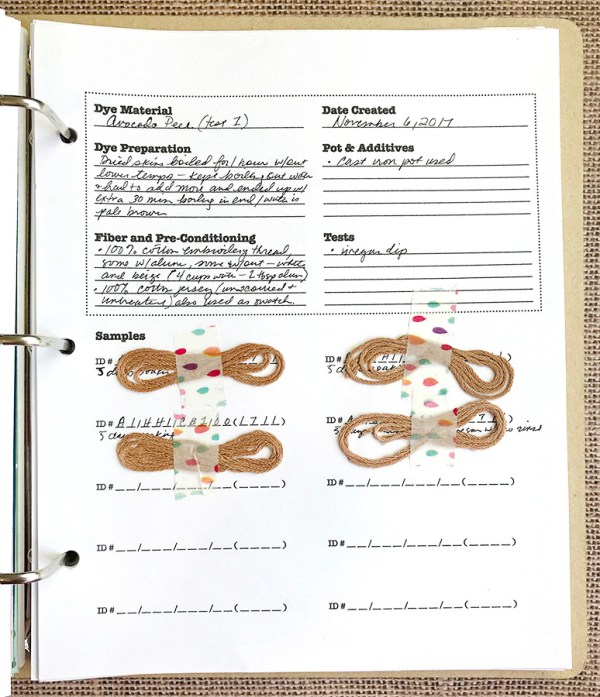 Dye Material
Avocado Peel (test 1)
Date Created
November 6, 2017
Dye Preparation
Dried skin boiled for 1 hour w/out
lower temps – kept boiling out water
& had to add more and ended up w/
extra 30 min boiling in end / water is
pale brown
Pot & Additives
• Cast iron pot used
Fiber and Pre-Conditioning
• 100% cotton embroidery thread,
some w/alum, some w/out – white
and beige
• 100% cotton jersey (unscoured +
untreated) also used as swatch.
Tests
• vinegar dip
Samples
ID #
ID #
5
ID #
5 day
ID #
5
ID # __/__/__/__(____)
ID # __/__/__/__(____)
ID # __/__/__/__(____)
ID # __/__/__/__(____)
ID # __/__/__/__(____)
ID # __/__/__/__(____)